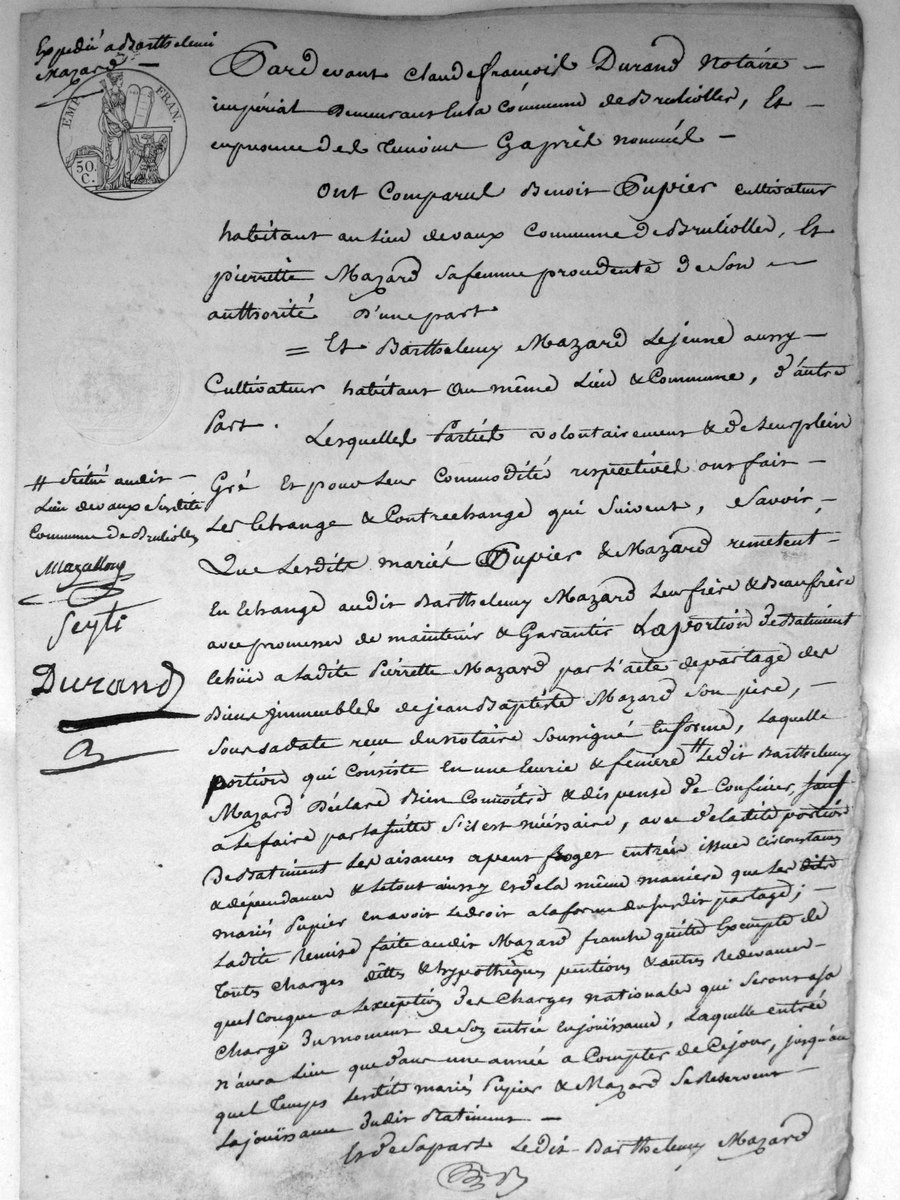 Expedié a Barthelemi
Mazard —
EMP. FRAN.
50.
C.
Pardevant Claude françois Durand Notaire —
impérial Demeurant en la Commune de Brulioles, Et —
en presence des temoins Gapriès nommés —
Ont Comparus Benoit Pupier cultivateur
habitant au Lieu de vaux Commune de Brulioles, Et
pierrette Mazard sa femme procedente de Son —
authorité D'une part
= Et Barthelemy Mazard Le jeune aussy —
Cultivateur habitant au même Lieu & Commune, d'autre
Part.
Lesquelles Parties volontairement & de Leur plein
Gré Et pour Leur Commodités respectives ont fait —
Les Echange & Contreechange qui Suivent, Savoir,
Que Lesdits mariés Pupier & Mazard remetent —
En Echange audit Barthelemy Mazard Leur frère & Beaufrère
avec promesse de maintenir & Garantir La portion de Batiment
échüe a Ladite Pierrette Mazard par L'acte de partage des
Biens Immeubles de jean Baptiste Mazard Son père, —
Sous sa date recu du notaire Soussigné En forme, Laquelle
portion qui Consiste En une Ecurie & feniere # Ledit Barthelemy
Mazard Déclare Bien Connoitre & dispense de Confiner, sauf
a Le faire par La suitte S'il est nécéssaire, avec de ladite portion
De Batiment Les aisances apent entrées issues circonstances
& dépendance & Le tout aussy Est de La même maniere que Les dits
mariés Pupier en avoir Le droit a la forme du Susdit partage; —
Ladite Remise faite audit Mazard franche quitte Exempte de
Toutes Charges dettes & hypothèques pentions & autres Redevances —
quelconque a Lexception des Charges nationales qui Seront a sa
Charge du moment de Son entrée En joüissance, Laquelle entrée
n'aura Lieu que dans une année a Compter de Cejour, jusqu'au
quel Temps Lesdits mariés Pupier & Mazard Se Reservent —
La joüissance dudit Batiment —
Et de Sa part Ledit Barthelemy Mazard
# Situé audit —
Lieu de vaux Susdite
Commune de Brulioles
Mazallong
Seyti
Durand